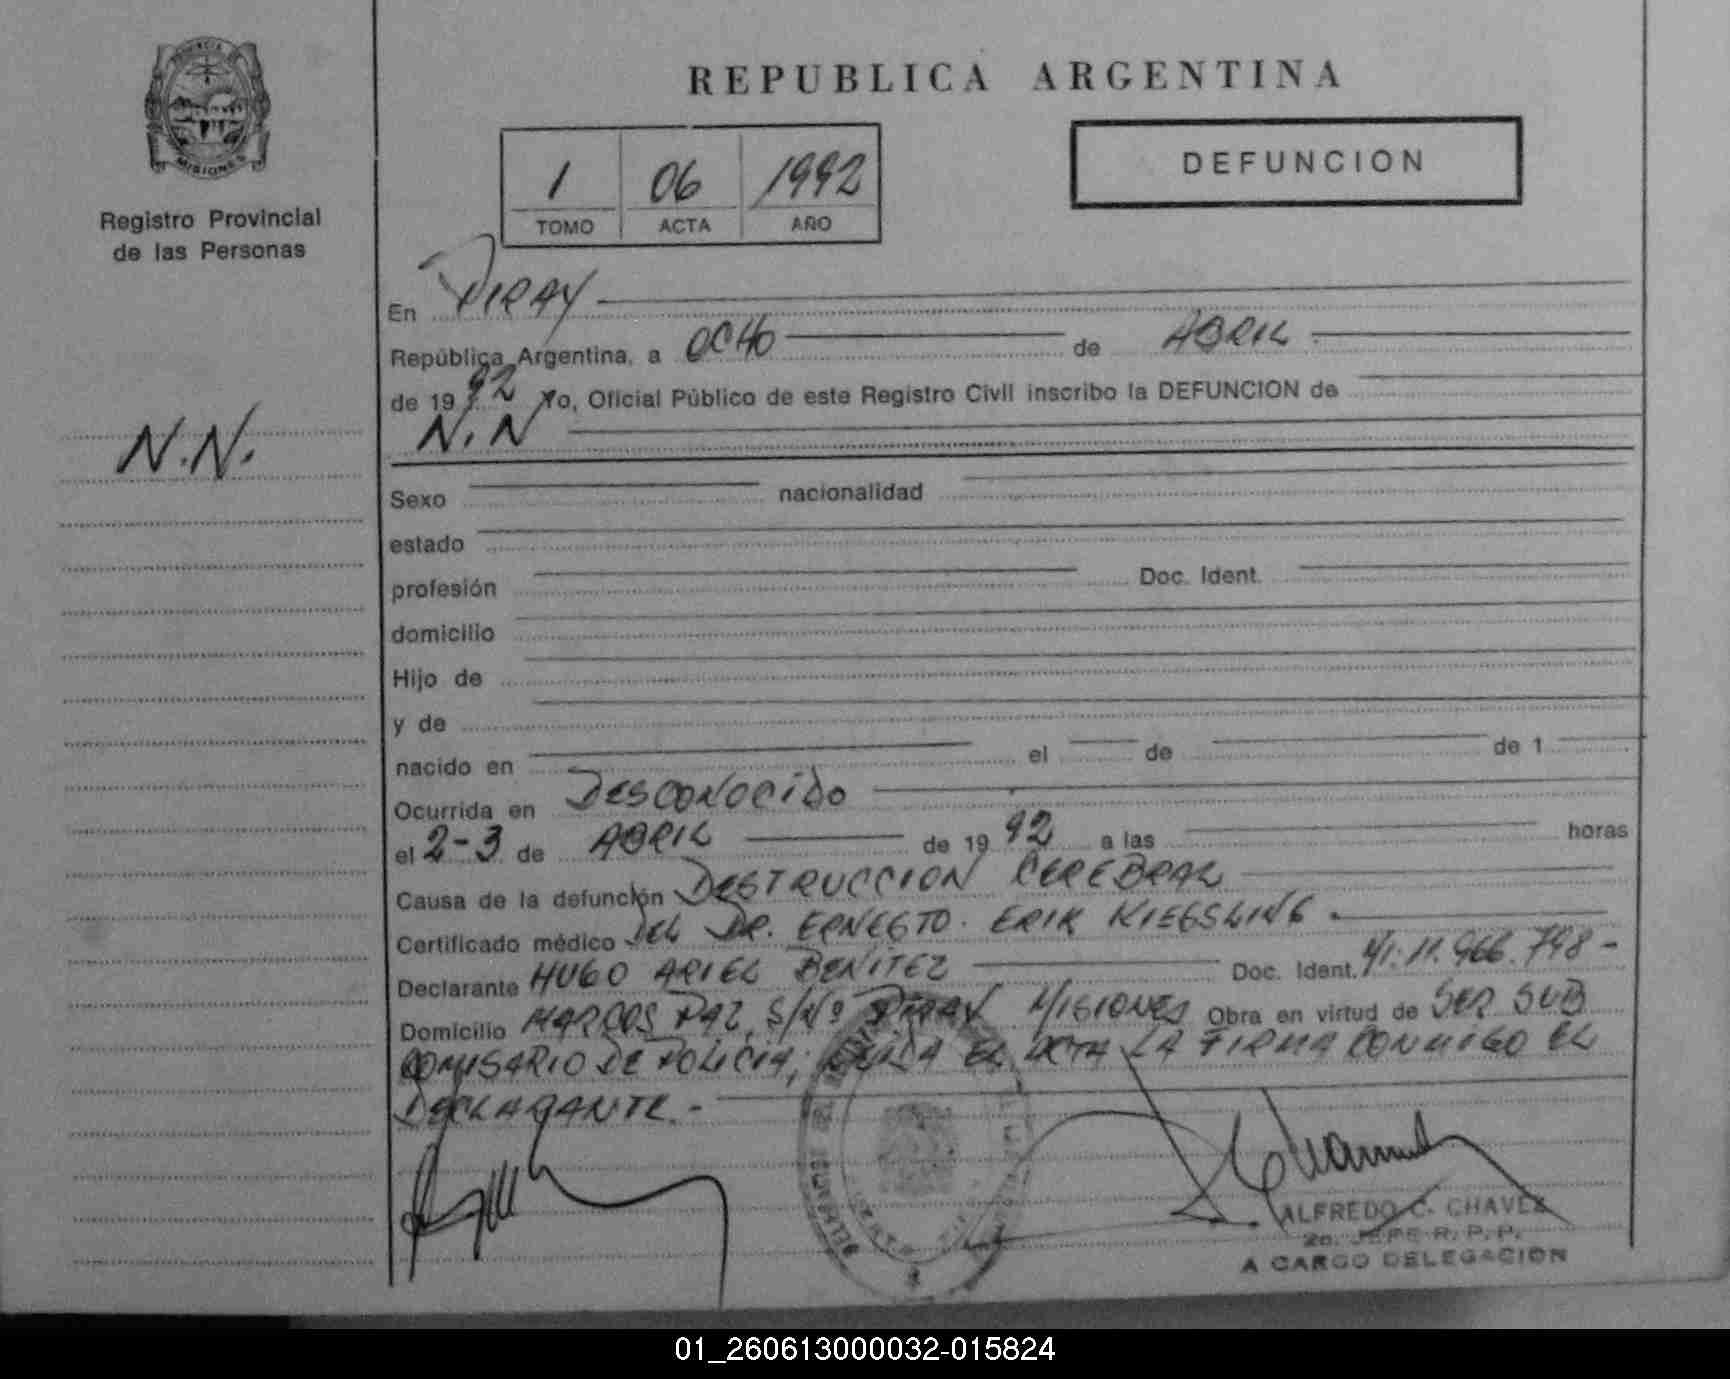 PROVINCIA
MISIONES
Registro Provincial
de las Personas
N.N.
REPUBLICA ARGENTINA
1 06 1992
TOMO ACTA AÑO
DEFUNCION
En PIRAY
República Argentina, a OCHO de ABRIL
de 19 92 Yo, Oficial Público de este Registro Civil inscribo la DEFUNCION de
N.N
Sexo nacionalidad
estado
profesión Doc. Ident.
domicilio
Hijo de
y de
nacido en el de de 1
Ocurrida en DESCONOCIDO
el 2-3 de ABRIL de 19 92 a las horas
Causa de la defunción DESTRUCCION CEREBRAL
Certificado médico DEL DR. ERNESTO. ERIK KIEGSLING.
Declarante HUGO ARIEL BENITEZ Doc. Ident. 11.966.798-
Domicilio MARCOS PAZ, S/Nº PIRAY MISIONES Obra en virtud de SER SUB
COMISARIO DE POLICIA; EL ACTA LA FIRMA CONMIGO EL
DECLARANTE.-
ALFREDO C. CHAVEZ
2o. JEFE R.P.P.
A CARGO DELEGACION
01_260613000032-015824